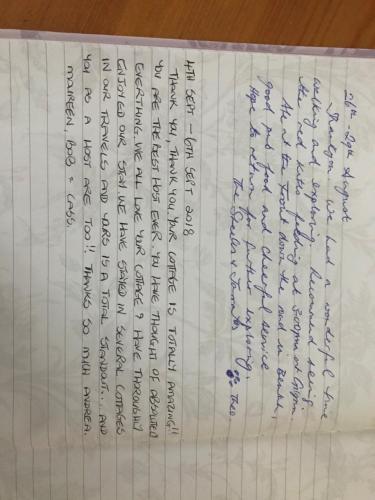 26th - 29th August
Thankyou we had a wonderful time
walking and exploring. Recommend seeing
the red kites feeding at 2:00pm at
Ate at the down the road in
good pub food and cheerful service
Hope to return for further exploring.
The & Theo
4TH SEPT - 6TH SEPT 2018
THANK YOU, THANK YOU YOUR COTTAGE IS TOTALLY AMAZING!!
YOU ARE THE BEST HOST EVER YOU HAVE THOUGHT OF ABSOLUTELY
EVERYTHING. WE ALL LOVE YOUR COTTAGE & HAVE THOROUGHLY
ENJOYED OUR STAY. WE HAVE STAYED IN SEVERAL COTTAGES
IN OUR TRAVELS AND YOURS IS A TOTAL STANDOUT... AND
YOU AS A HOST ARE TOO!! THANKS SO MUCH ANDREA.
MAUREEN, BOB & CASS.